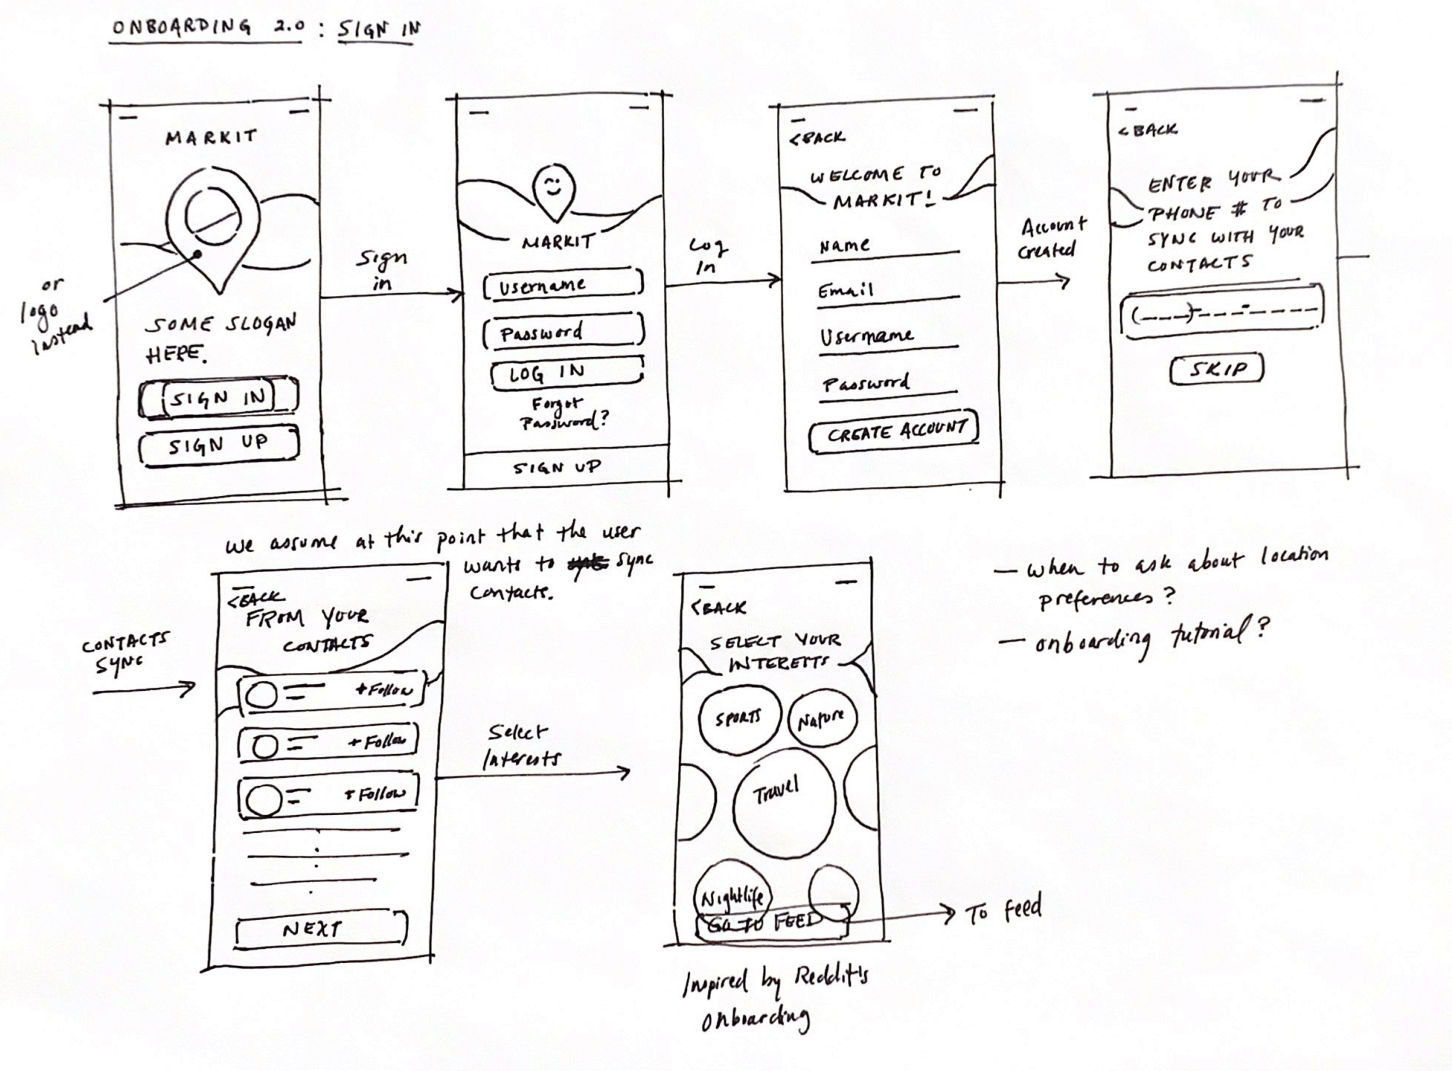 ONBOARDING 2.0 : SIGN IN
MARKIT
or
logo
instead
SOME SLOGAN
HERE.
SIGN IN
SIGN UP
Sign
in
MARKIT
Username
Password
LOG IN
Forgot
Password?
SIGN UP
Log
In
<BACK
WELCOME TO
MARKIT!
Name
Email
Username
Password
CREATE ACCOUNT
Account
Created
<BACK
ENTER YOUR
PHONE # TO
SYNC WITH YOUR
CONTACTS
(___)___-____
SKIP
We assume at this point that the user
wants to sync
contacts.
CONTACTS
SYNC
<BACK
FROM YOUR
CONTACTS
+Follow
+Follow
+Follow
NEXT
Select
Interests
<BACK
SELECT YOUR
INTERESTS
SPORTS
Nature
Travel
Nightlife
GO TO FEED
To feed
Inspired by Reddit's
Onboarding
— when to ask about location
preferences?
— onboarding tutorial?